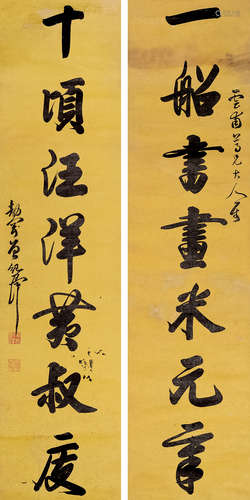 一船書畫米元章
雲甫尊兄大人屬
十頃汪洋黃叔度